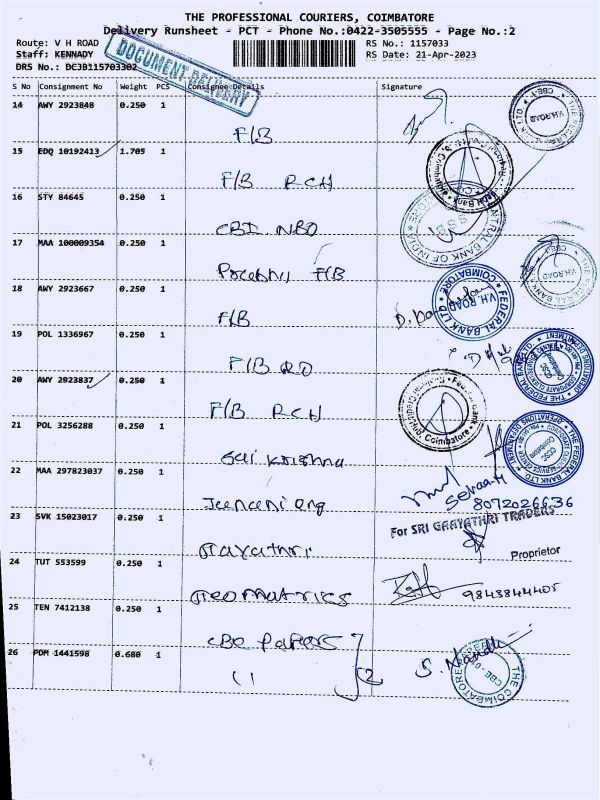 THE PROFESSIONAL COURIERS, COIMBATORE
Delivery Runsheet - PCT - Phone No.:0422-3505555 - Page No.:2
Route: V H ROAD
RS No.: 1157033
Staff: KENNADY
RS Date: 21-Apr-2023
DRS No.: DCJB115703302
DOCUMENT DELIVERY
S No Consignment No Weight PCS Consignee Details Signature
14 AWY 2923848 0.250 1
F/B
15 EDQ 10192413 1.705 1
F/B RCH
16 STY 84645 0.250 1
CBI NBO
17 MAA 100009354 0.250 1
F/B
18 AWY 2923667 0.250 1
F/B
19 POL 1336967 0.250 1
F/B RO
20 AWY 2923837 0.250 1
F/B RCH
21 POL 3256288 0.250 1
Sai Krishna
22 MAA 297823037 0.250 1
Jeanani eng
8072026636
23 SVK 15023017 0.250 1
For SRI GAAYATHRI TRADERS
Proprietor
Gayathri
24 TUT 553599 0.250 1
Geomatrics
9843844405
25 TEN 7412138 0.250 1
CBE Papers
26 PDM 1441598 0.680 1
2
V.H.ROAD
CENTRAL BANK OF INDIA
V.H.ROAD
FEDERAL BANK LTD
V.H. ROAD
COIMBATORE
THE FEDERAL BANK LTD
Coimbatore
THE FEDERAL BANK LTD
Coimbatore
THE COIMBATORE